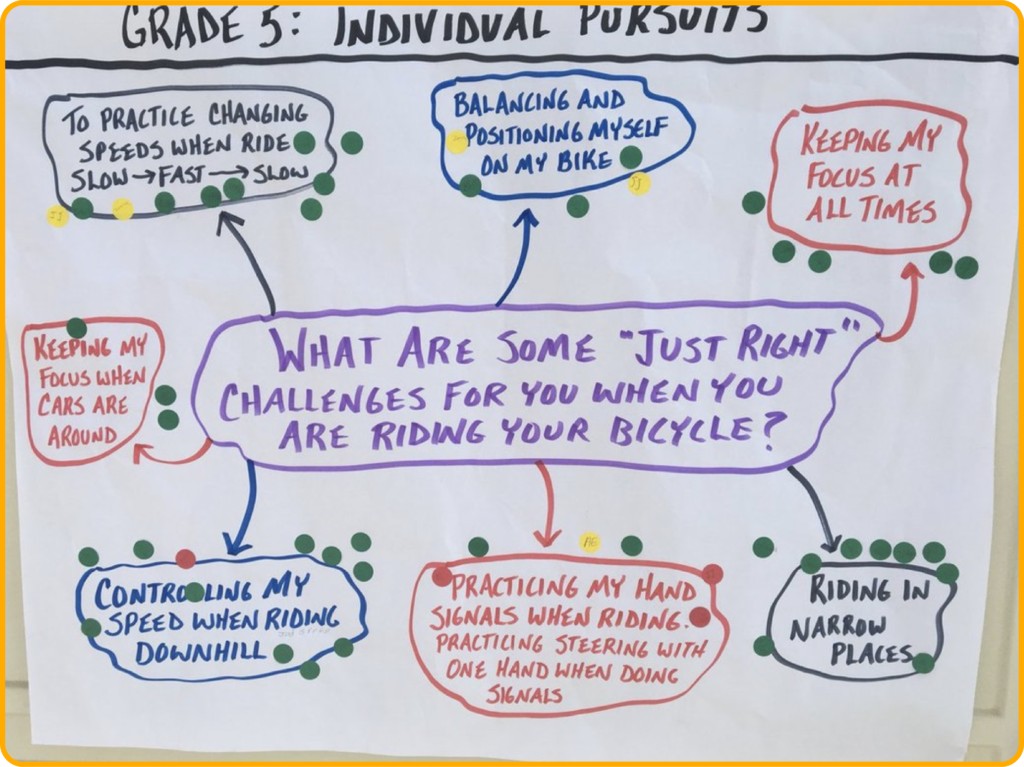 GRADE 5: INDIVIDUAL PURSUITS
TO PRACTICE CHANGING
SPEEDS WHEN RIDE
SLOW → FAST → SLOW
JJ
BALANCING AND
POSITIONING MYSELF
ON MY BIKE
JJ
KEEPING MY
FOCUS AT
ALL TIMES
KEEPING MY
FOCUS WHEN
CARS ARE
AROUND
WHAT ARE SOME "JUST RIGHT"
CHALLENGES FOR YOU WHEN YOU
ARE RIDING YOUR BICYCLE?
CONTROLLING MY
SPEED WHEN RIDING
DOWNHILL
AE
PRACTICING MY HAND
SIGNALS WHEN RIDING.
PRACTICING STEERING WITH
ONE HAND WHEN DOING
SIGNALS
RIDING IN
NARROW
PLACES